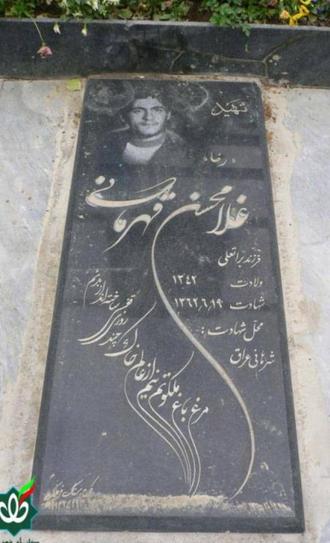 شهید
«رضا»
غلامحسن قهرمانی
فرزند براتعلی
ولادت ۱۳۴۲
شهادت ۱۳۶۲،۶،۱۹
محل شهادت:
شرهانی عراق
مرغ باغ ملکوتم نیم از عالم خاک
چند روزی قفسی ساخته‌اند از بدنم